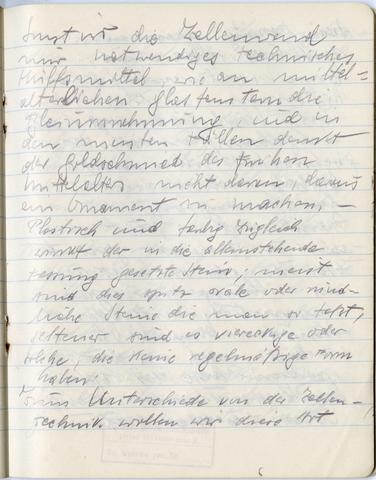 Sonst ist die Zellenwand
nur notwendiges technisches
Hilfsmittel, wie an mittel=
alterlichen Glasfenstern die
Bleiumrahmung, und in
den meisten Fällen denkt
der Goldschmied des frühen
Mittelalters nicht daran, daraus
ein Ornament zu machen. –
Plastisch und farbig zugleich
wirkt der in die alleinstehende
Fassung gesetzte Stein; meist
sind dies spitz ovale oder rund-
liche Steine die man so fasst,
seltener sind es viereckige oder
solche, die keine regelmäßige Form
haben.
Zum Unterschiede von der Zellen-
technik wollen wir diese Art